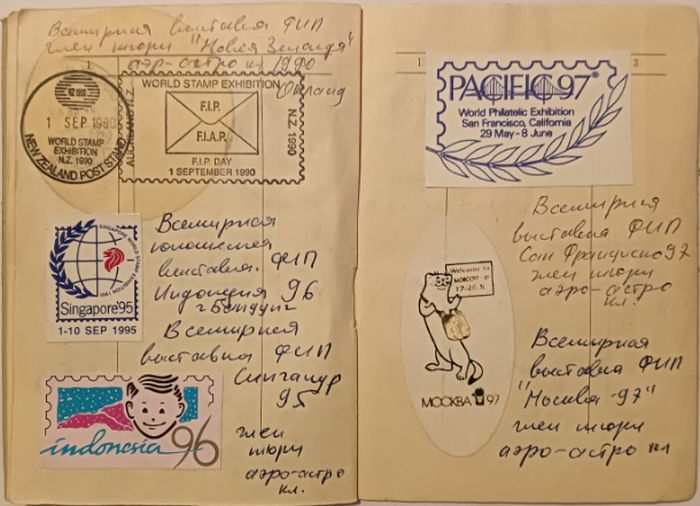 Всемирная выставка ФИП
член жюри "Новая Зеландия"
аэро-астро кл 1990
Окланд
1
NZ 1990
1 SEP 1990
WORLD STAMP
EXHIBITION
N.Z. 1990
NEW ZEALAND POST STAND
WORLD STAMP EXHIBITION
AUCKLAND N.Z.
N.Z. 1990
F.I.P.
F.I.A.P.
F.I.P. DAY
1 SEPTEMBER 1990
SINGAPORE WORLD STAMP EXHIBITION 1995
Singapore'95
1-10 SEP 1995
Всемирная
юношеская
выставка ФИП
Индонезия 96
г. Бандунг
Всемирная
выставка ФИП
Сингапур
95
член
жюри
аэро-астро
кл.
indonesia 96
1
3
PACIFIC 97®
World Philatelic Exhibition
San Francisco, California
29 May - 8 June
Всемирная
выставка ФИП
Сан Франциско 97
член жюри
аэро-астро
кл.
Welcome to
MOSCOW
17-26.
МОСКВА 97
Всемирная
выставка ФИП
"Москва-97"
член жюри
аэро-астро кл